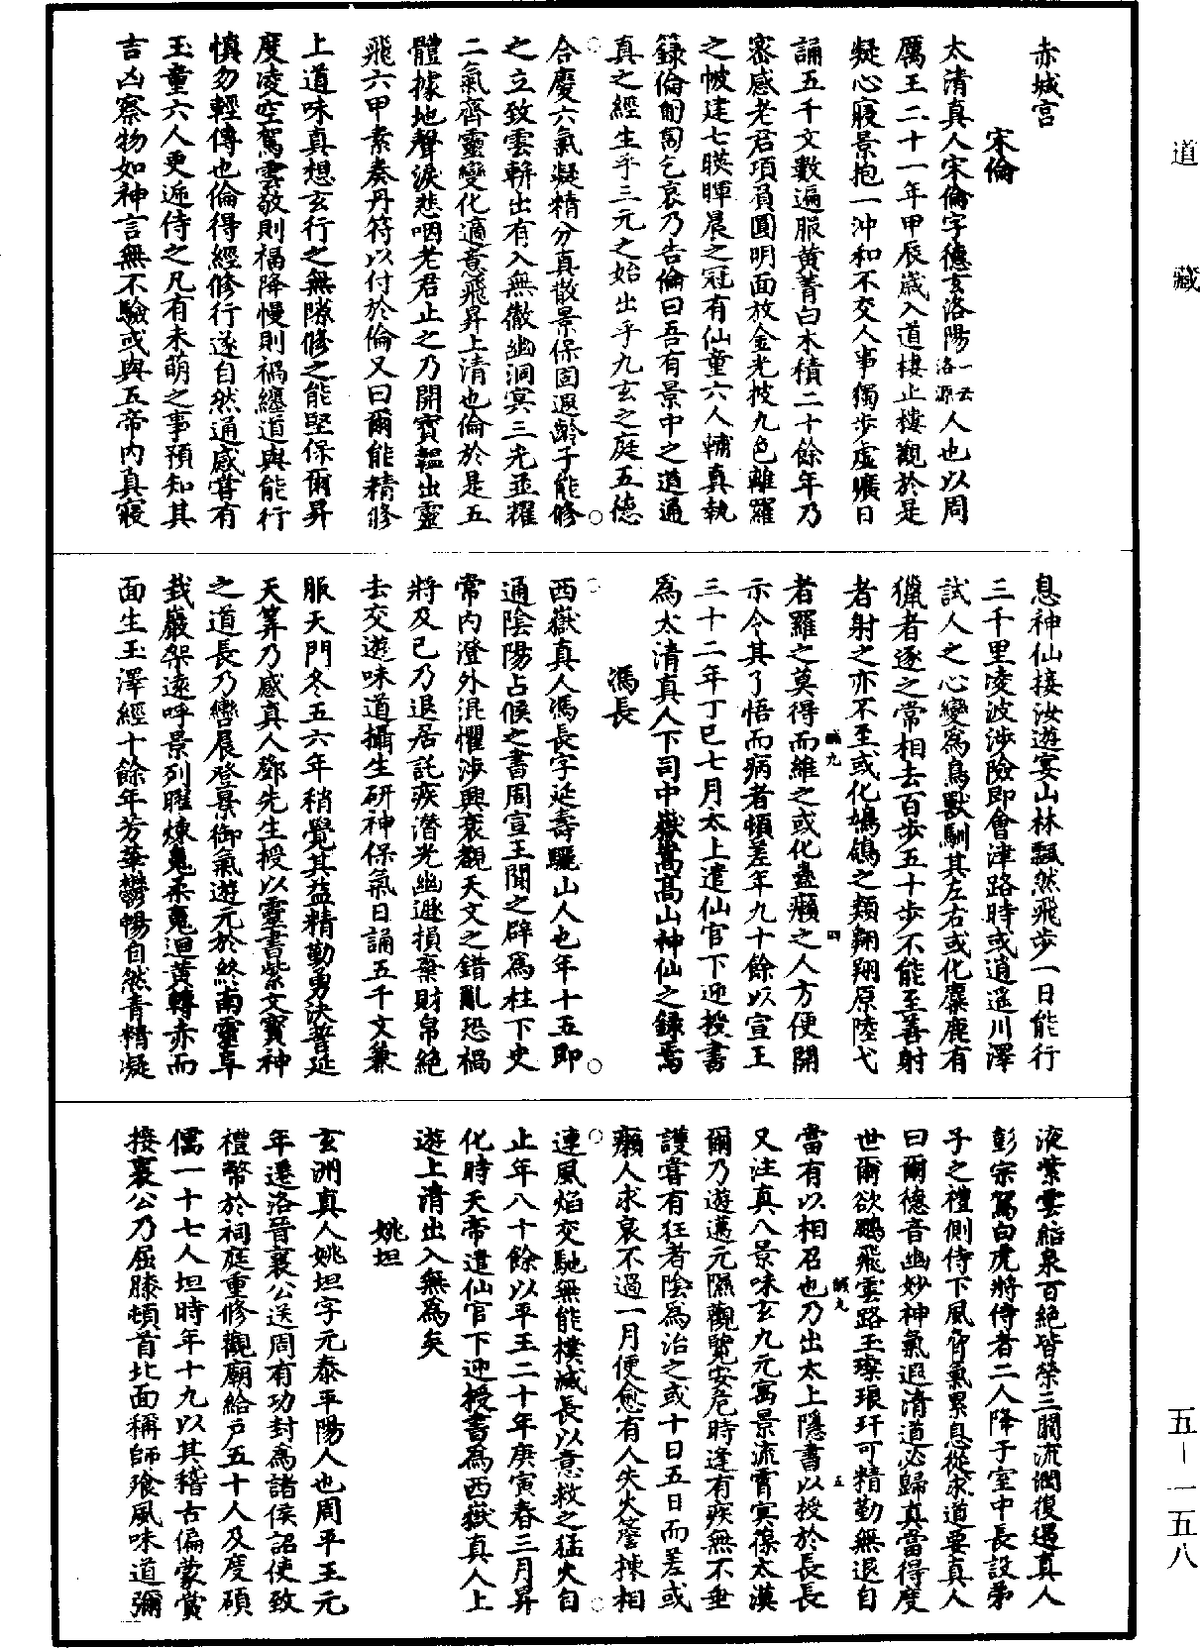 道藏
五一一五八
赤城宮
宋倫
太清真人宋倫字德玄洛陽一云洛源人也以周
厲王二十一年甲辰歲入道棲止樓觀於是
凝心寢景抱一沖和不交人事獨步虛曠日
誦五千文數遍服黃菁白木積二十餘年乃
密感老君項負圓明面放金光披九色離羅
之帔建七暎暉晨之冠有仙童六人輔真執
籙倫匍匐乞哀乃告倫曰吾有景中之道通
真之經生乎三元之始出乎九玄之庭五德
合慶六氣凝精分真散景保固遐齡子能修
之立致雲軿出有入無徹幽洞冥三光並耀
二氣齊靈變化適意飛昇上清也倫於是五
體據地聲淚悲咽老君止之乃開寶韞出靈
飛六甲素奏丹符以付於倫又曰爾能精修
上道味真想玄行之無隙修之能堅保爾昇
度凌空駕雲敬則福降慢則禍纏道與能行
慎勿輕傳也倫得經修行遂自然通感嘗有
玉童六人更遞侍之凡有未萌之事預知其
吉凶察物如神言無不驗或與五帝內真寢
息神仙接汝遊宴山林飄然飛步一日能行
三千里凌波涉險即會津路時或逍遥川澤
試人之心變為鳥獸馴其左右或化麋鹿有
獵者逐之常相去百步五十步不能至善射
者射之亦不至或化鳩鴿之類翱翔原陸弋
者羅之莫得而維之或化蠱癩之人方便開
示令其了悟而病者頓差年九十餘以宣王
三十二年丁巳七月太上遣仙官下迎授書
為太清真人下司中嶽嵩高山神仙之錄焉
馮長
西嶽真人馮長字延壽驪山人也年十五即
通陰陽占候之書周宣王聞之辟為柱下史
常內澄外混懼涉興衰觀天文之錯亂恐禍
將及己乃退居託疾潛光幽遯損棄財帛絕
去交遊味道攝生研神保氣日誦五千文兼
服天門冬五六年稍覺其益精勤勇決普延
天筭乃感真人鄧先生授以靈書紫文寶神
之道長乃巒晨登景御氣遊元於終南靈阜
我巖架遠呼景列曜煉魂柔魄迴黃轉赤而
面生玉澤經十餘年芳華鬱暢自然青精凝
液紫雲結泉百絕皆榮三關流潤復遇真人
彭宗駕白虎將侍者二人降于室中長設弟
子之禮側侍下風脅氣累息從求道要真人
曰爾德音幽妙神氣遐清道必歸真當得度
世爾欲鵬飛雲路玉璨琅玕可精勤無退自
當有以相召也乃出太上隱書以授於長長
又注真八景味玄九元寓景流霄冥葆太漠
爾乃遊邁元隰觀覽安危時逢有疾無不垂
護嘗有狂者陰為治之或十日五日而差或
癩人求哀不過一月便愈有人失火簷棟相
連風焰交馳無能撲滅長以意救之猛火自
止年八十餘以平王二十年庚寅春三月昇
化時天帝遣仙官下迎授書為西嶽真人上
遊上清出入無為矣
姚坦
玄洲真人姚坦字元泰平陽人也周平王元
年遷洛晉襄公送周有功封為諸侯詔使致
禮幣於祠庭重修觀廟給戶五十人及度碩
儒一十七人坦時年十九以其稽古偏蒙賞
接襄公乃屈膝頓首北面稱師飱風味道彌